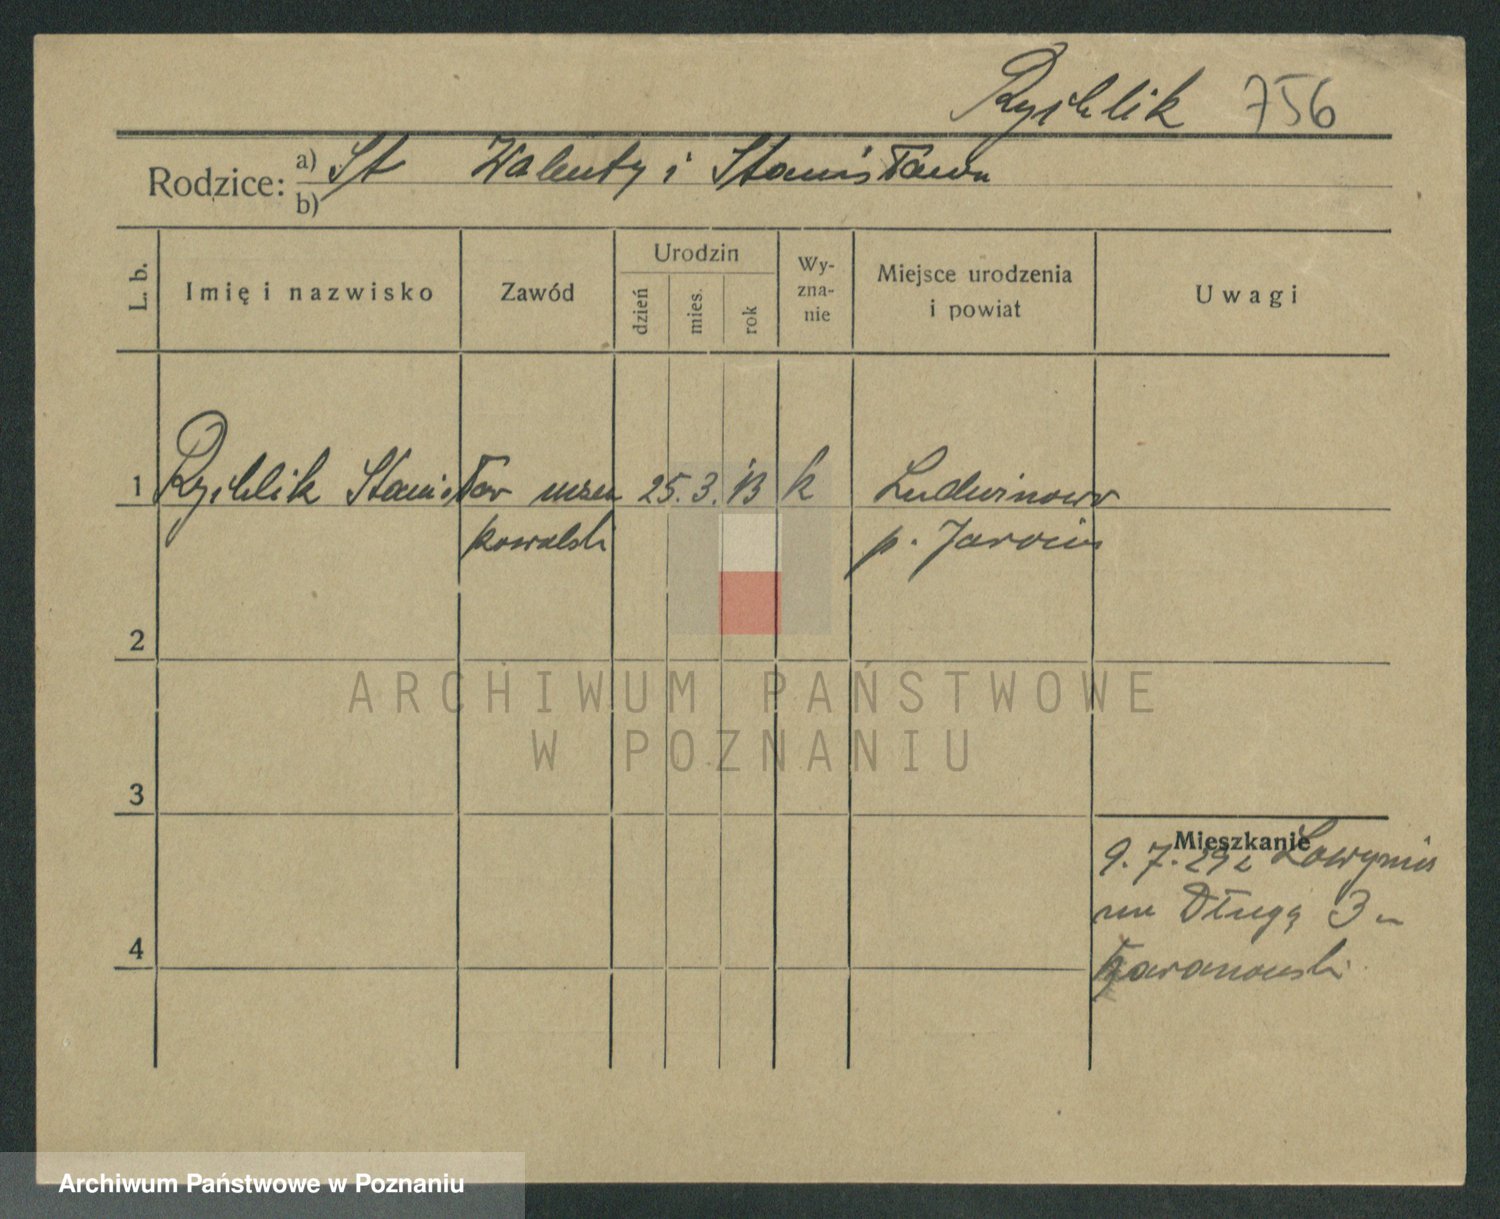 Rychlik 756
Rodzice: a) St Walenty i Stanisława
b)
L. b.
Imię i nazwisko
Zawód
Urodzin
dzień
mies.
rok
Wy-
zna-
nie
Miejsce urodzenia
i powiat
Uwagi
1 Rychlik Stanisław uczeń 25. 3. 13 k Ludwinowo
kowalski p. Jarocin
2
ARCHIWUM PAŃSTWOWE
W POZNANIU
3
Mieszkanie
9. 7. 29 z
na Długą 3
4
Archiwum Państwowe w Poznaniu